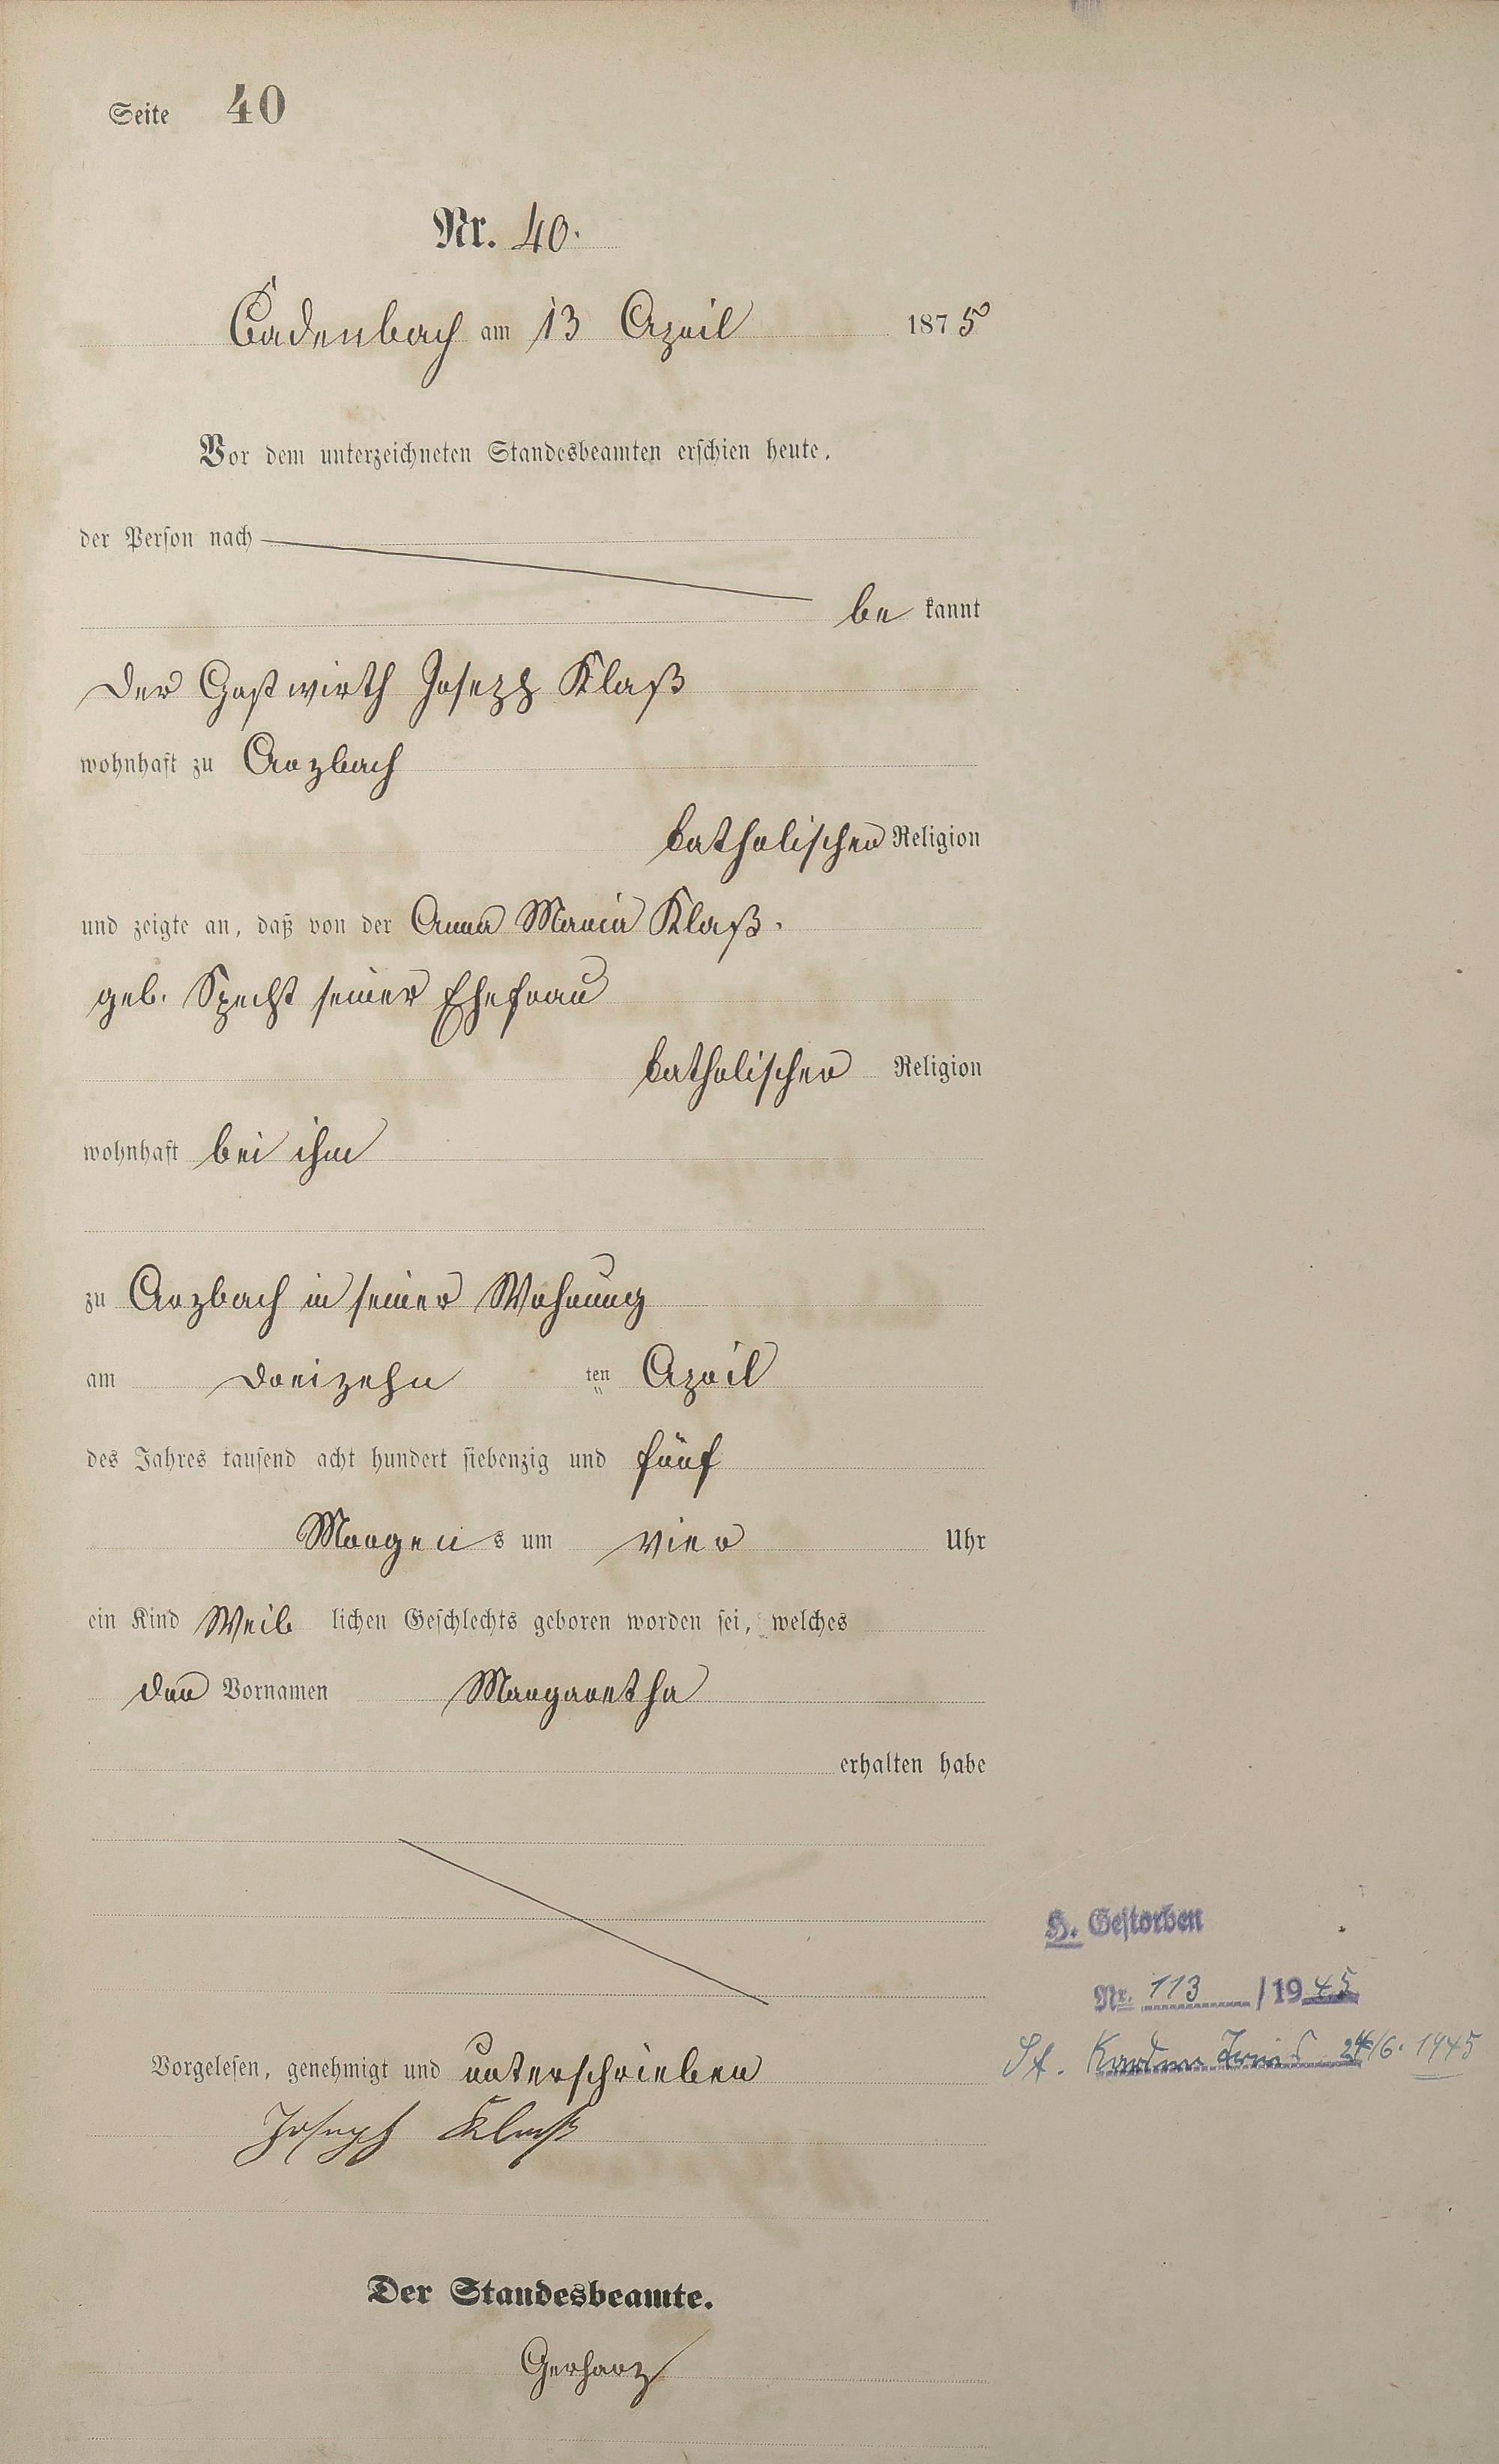 Seite 40
Nr. 40.
Cadenbach am 13 April 1875
Vor dem unterzeichneten Standesbeamten erschien heute,
der Person nach
be kannt
der Gastwirth Joseph Klaß
wohnhaft zu Arzbach
katholischer Religion
und zeigte an, daß von der Anna Maria Klaß.
geb. Specht seiner Ehefrau
katholischer Religion
wohnhaft bei ihm
zu Arzbach in seiner Wohnung
am dreizehn ten April
des Jahres tausend acht hundert siebenzig und fünf
Morgens um vier Uhr
ein Kind Weib lichen Geschlechts geboren worden sei, welches
den Vornamen Margaretha
erhalten habe
H. Gestorben
Nr. 113 /1945
St. 24/6. 1945
Vorgelesen, genehmigt und unterschrieben
Joseph Klaß
Der Standesbeamte.
Gerharz